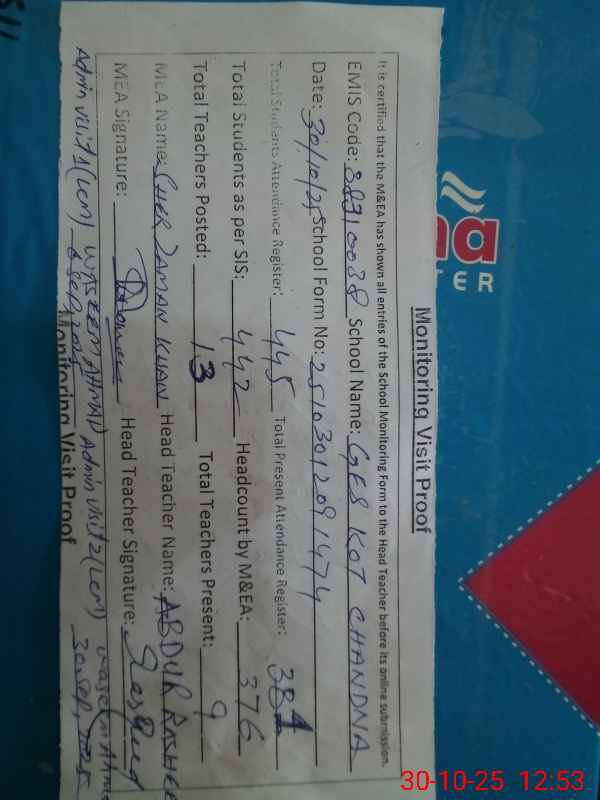 Monitoring Visit Proof
It is certified that the M&EA has shown all entries of the School Monitoring Form to the Head Teacher before its online submission.
EMIS Code: 38310038 School Name: GES KOT CHANDNA
Date: 30/10/25 School Form No: 2510301209 1474
Total Students Attendance Register: 445 Total Present Attendance Register: 384
Total Students as per SIS: 442 Headcount by M&EA: 376
Total Teachers Posted: 13 Total Teachers Present: 9
MEA Name: SHER ZAMAN KHAN Head Teacher Name: ABDUR RASHEE
MEA Signature: Head Teacher Signature:
Admin visit 1 (LCM) WASEEM AHMAD Admin visit 2 (LCM) Waseem Ahm
30 Sep, 2025
Monitoring Visit Proof
na
TER
30-10-25 12:53